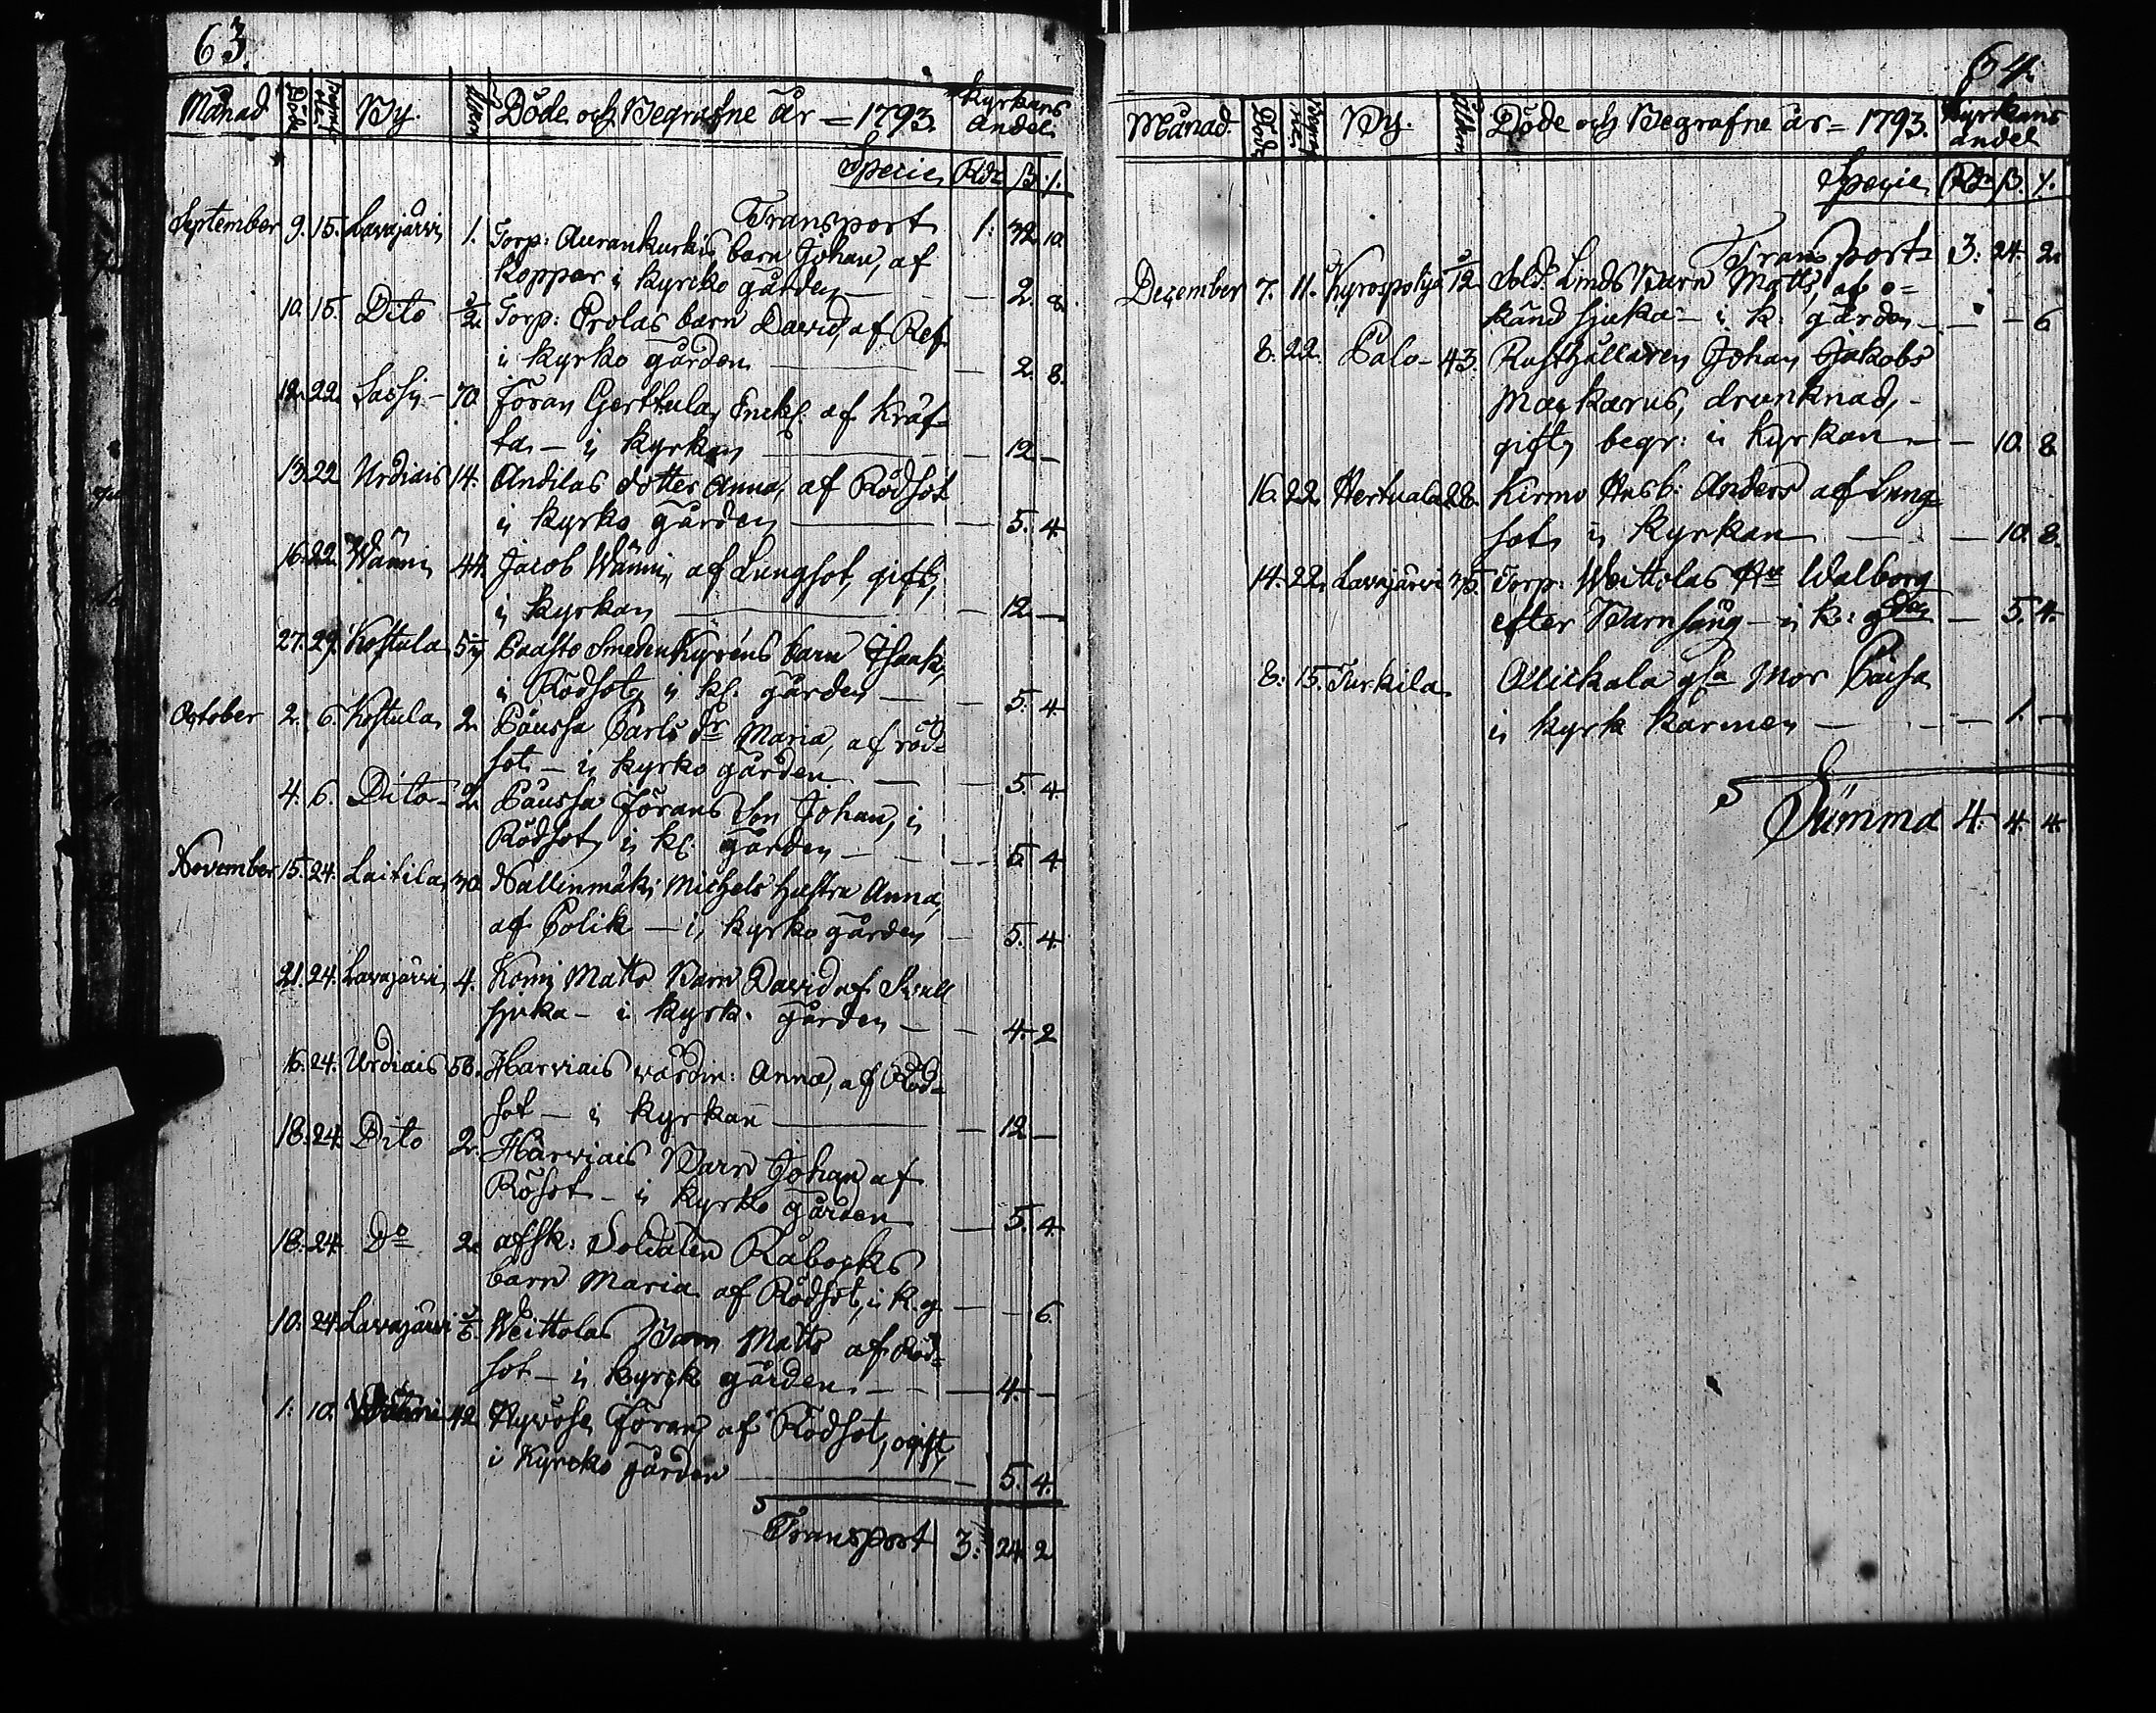 63.
Månad Döde By. Ålder Döde och Begrafne år = 1793. Kyrkans
andel
Specie Rdr ß. /.
Transport 1: 32 10.
September 9. 15. Lavajärvi 1. Torp: Aurankurkis barn Johan, af
koppor i kyrcko gården — 2. 8.
10. 15. Dito 1/2 Torp: Erolas barn David, af Ref
i kyrko gården — 2. 8.
12. 22. Sassi — 70 Jöran Gerttula, Enckl. af Kräf=
ta, — i kyrkan — 12 —
13. 22 Urdiais 14. Andilas dotter Anna, af Rödsot
i kyrko gården — 5. 4
16. 22. Wänni 44. Jacob Wänni, af Lungsot, gift,
i kyrkan — 12 —
27. 29. Kostula Paasto Smeden Kyréns barn Isaak,
i Rödsot, i kl. gården — 5. 4
October 2. 6. Kostula 2. Päussa Carls dr Maria, af röd=
sot — i kyrko gården — 5 4
4. 6. Dito — 2. Päussa Jörans Son Johan, i
Rödsot, i kl. gården — 5. 4
November 15. 24. Laitila 30. Nallinmäki Michels hustru Anna,
af Colik — i kyrko gården — 5. 4
21. 24. Lavajärvi 4. Komi Matts Barn David af Svull
sjuka — i kyrk. gården — 4. 2
16. 24. Urdiais 56. Harviais värdin: Anna, af Röd=
sot — i kyrkan — 12 —
18. 24. Dito 2. Harviais Barn Johan af
Rösot — i kyrko gården — 5. 4
18. 24. Do 2. afsk: Soldaten Råbocks
barn Maria af Rödsot, i K. g. — — 6.
10. 24. Lavajärvi Weittolas Barn Matts af Röd=
sot — i kyrck gården — 4. —
1. 10. 42 Hyrösc Jöran af Rödsot, ogift,
i Kyrcko gården — 5. 4.
Transport 3: 24 2
64.
Månad. Döde By. Ålder Döde och Begrafne år = 1793. Kyrkans
andel
Specie Rdr ß. /.
Transport 3: 24. 2.
December 7. 11. Kyrospohja Sold. Linds Barn Matts, af o=
känd sjuka — i k: gården — — 6
8. 22. Palo — 43. Rusthållaren Johan Jakobs
Mackarus, drunknad, —
gift, begr: i kyrkan — 10. 8
16. 22. Hertuala 28. Kirmu Husb: Anders af Lung=
sot, i kyrkan — 10. 8.
14. 22. Lavajärvi 35. Torp: Weittolas Hu Walborg
efter Barnsäng — i k: gden — 5. 4.
8. 15. Turkila Mickala gla Mor Caisa
i kyrk karmen — 1. —
Summa 4. 4. 4.